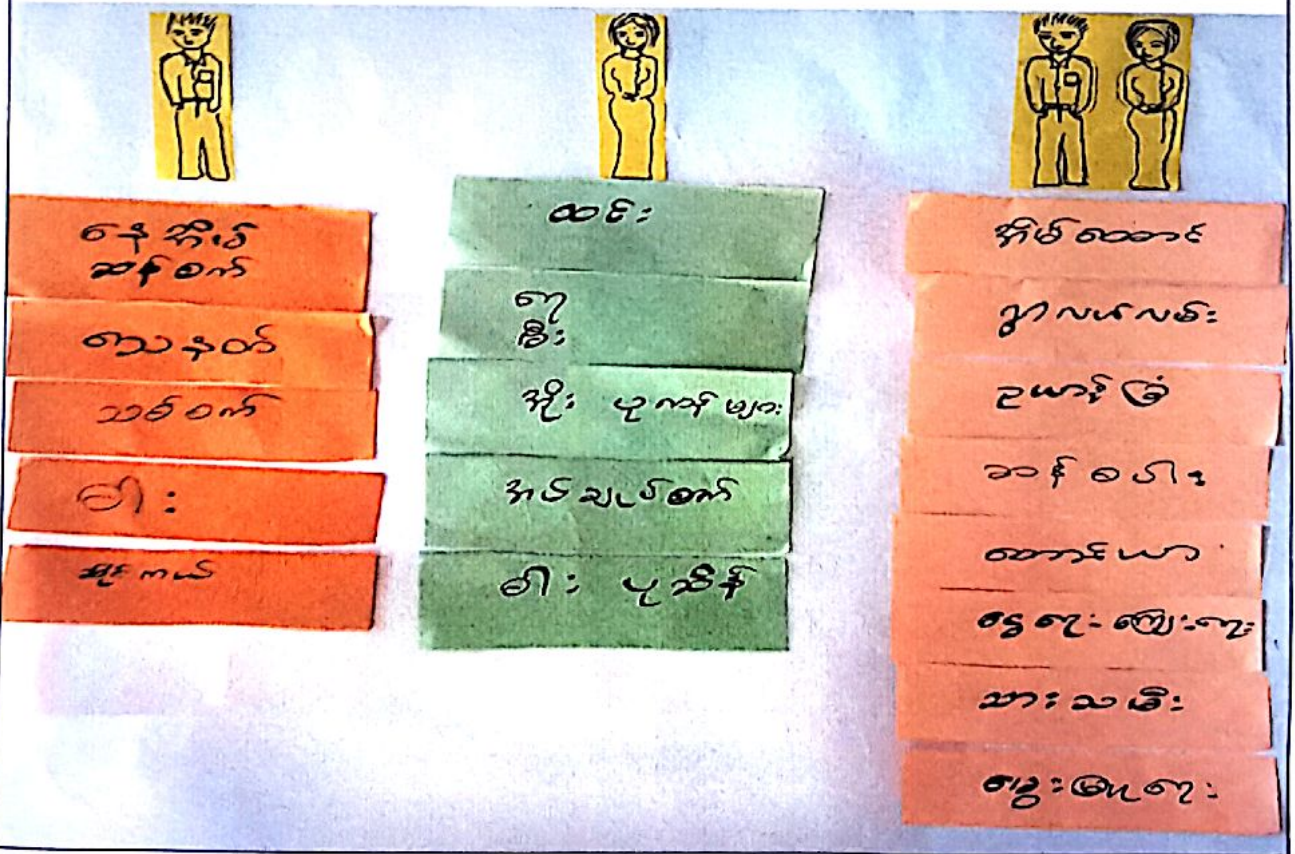 နေအိမ်
ဆန်စက်
သေနတ်
သစ်စက်
ဓါး
ထင်း
ရေ
မီး
အိုး ပုကန် များ
အပ်ချုပ်စက်
ဓါး ပုဆိန်
အိမ်ထောင်
ရွာလယ်လမ်း
ဥယာဉ်ခြံ
ဆန်စပါး
တောင်ယာ
ငွေရေးကြေးရေး
သားသမီး
မွေးမြူရေး